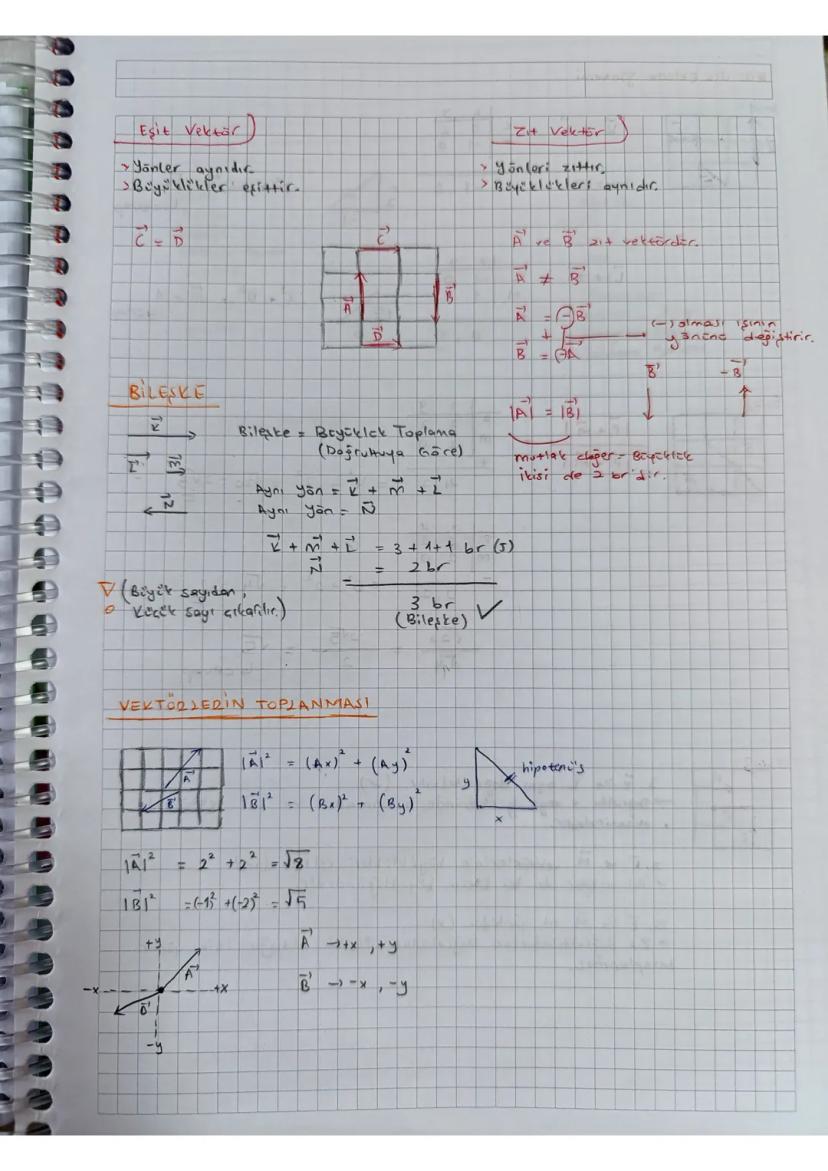 Eşit Vektör
> Yönler aynıdır.
> Büyüklükler eşittir.
C⃗ = D⃗
C⃗
A⃗
B⃗
D⃗
Zıt Vektör
> Yönleri zıttır.
> Büyüklükleri aynıdır.
A⃗ ve B⃗ zıt vektördür.
A⃗ ≠ B⃗
A⃗ = -B⃗
B⃗ = -A⃗
(-) olması işinin
yönünü değiştirir.
B⃗ -B⃗
|A⃗| = |B⃗|
mutlak değer = Büyüklük
ikisi de 2 br'dir.
BİLEŞKE
K⃗
L⃗ M⃗
N⃗
Bileşke = Büyüklük Toplama
(Doğrultuya Göre)
Aynı Yön = K⃗ + M⃗ + L⃗
Aynı Yön = N⃗
K⃗ + M⃗ + L⃗ = 3 + 1 + 1 br (5)
N⃗ = 2 br
=
3 br
(Bileşke) ✓
(Büyük sayıdan,
küçük sayı çıkarılır.)
VEKTÖRLERİN TOPLANMASI
A⃗
B⃗
|A⃗|² = (Ax)² + (Ay)²
|B⃗|² = (Bx)² + (By)²
y
hipotenüs
x
|A⃗|² = 2² + 2² = √8
|B⃗|² = (-1)² + (-2)² = √5
+y
A⃗
-x +x
B⃗
-y
A⃗ → +x , +y
B⃗ → -x , -y